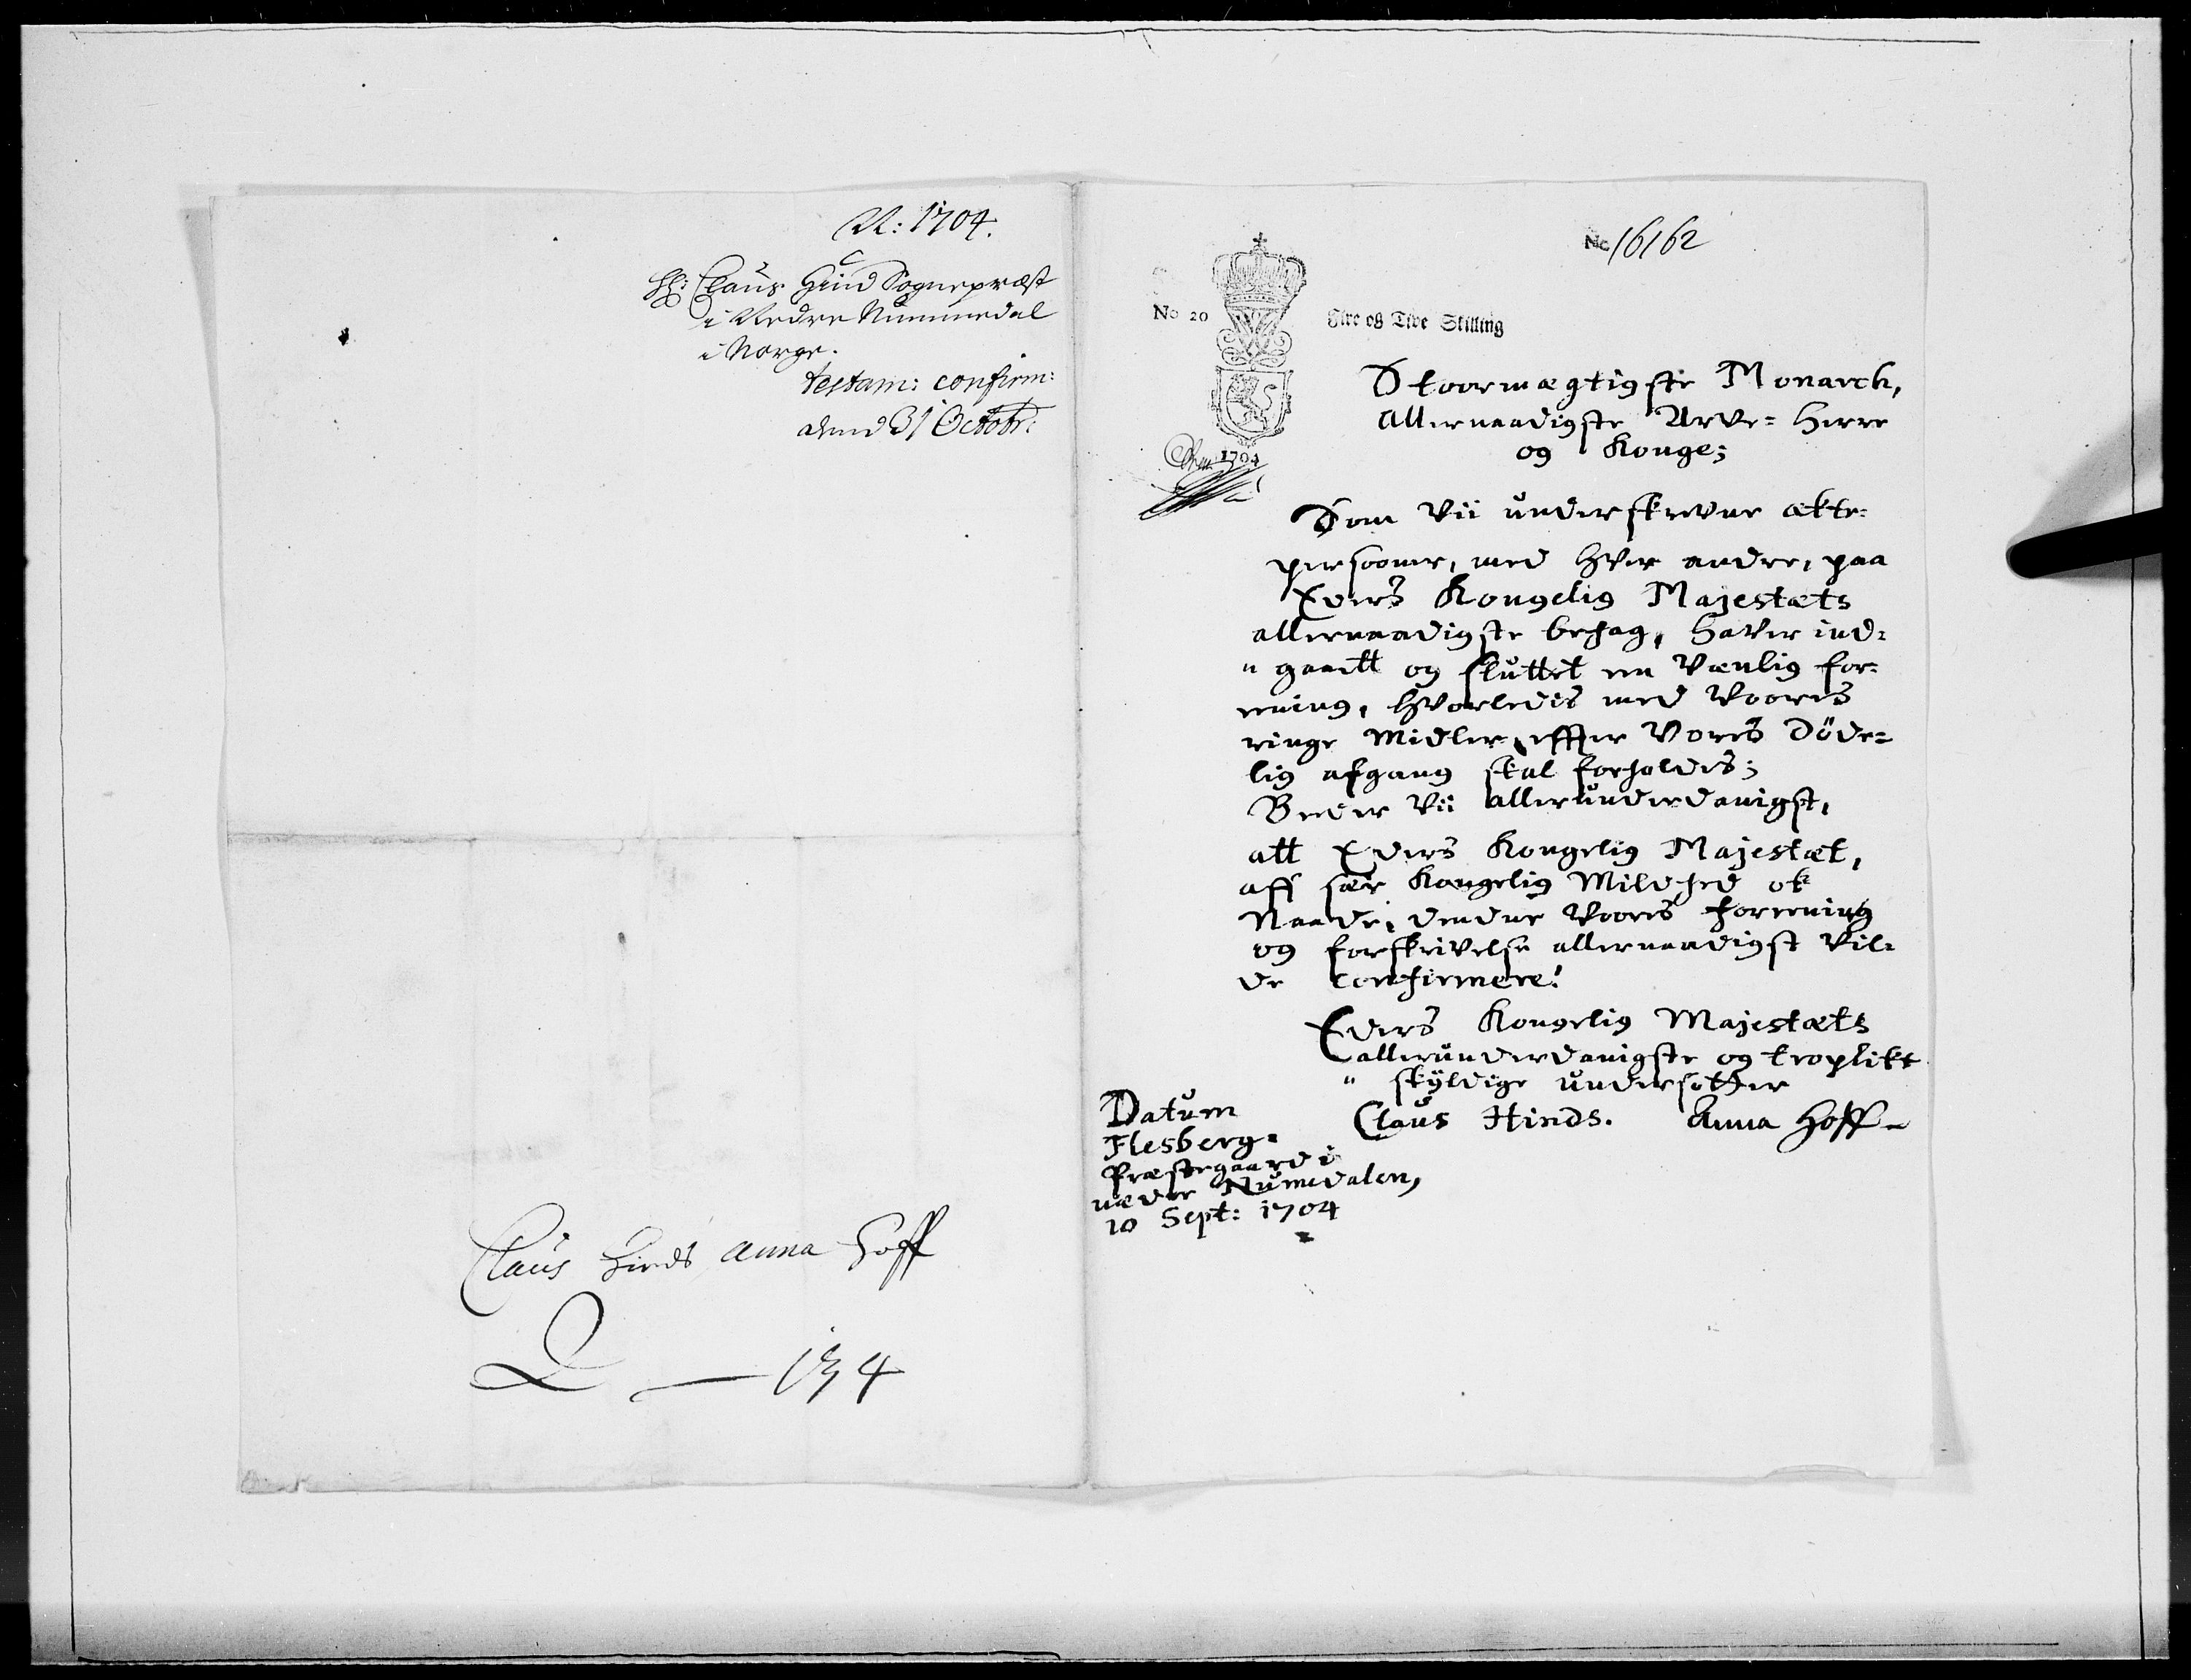 A: 1704.
Hr: Claus Hind Sognepræst
i Nedre Nummedal
i Norge.
testam: confirm:
dend 31 Octobr:
Claus Hinds Anna Hoff
No 16162
No 20
Fire og Tive Skilling
1704
Stoormægtigste Monarch,
Allernaadigste Arve- Herre
og Konge;
Som Vii underskrevne ækte-
personer, med hver andre, paa
Eders Kongelig Majestæts
allernaadigste behag, haver ind-
" gaaett og sluttet een Vænlig for-
eening, hvorledis med Voores
ringe Midler, effter Vores Döde-
lig afgang skal forholdes;
Beder Vii allerunderdanigst,
att Eders Kongelig Majestæt,
aff sær Kongelig Mildhed ok
Naade, dendne Voores foreening
og forskrivelse allernaadigst Vil-
de confirmere!
Eders Kongelig Majestæts
allerunderdanigste og troplikt
" skyldige undersotter
Claus Hinds. Anna Hoff
Datum
Flesberg-
Præstegaard i
neder Numedalen,
10 Sept: 1704